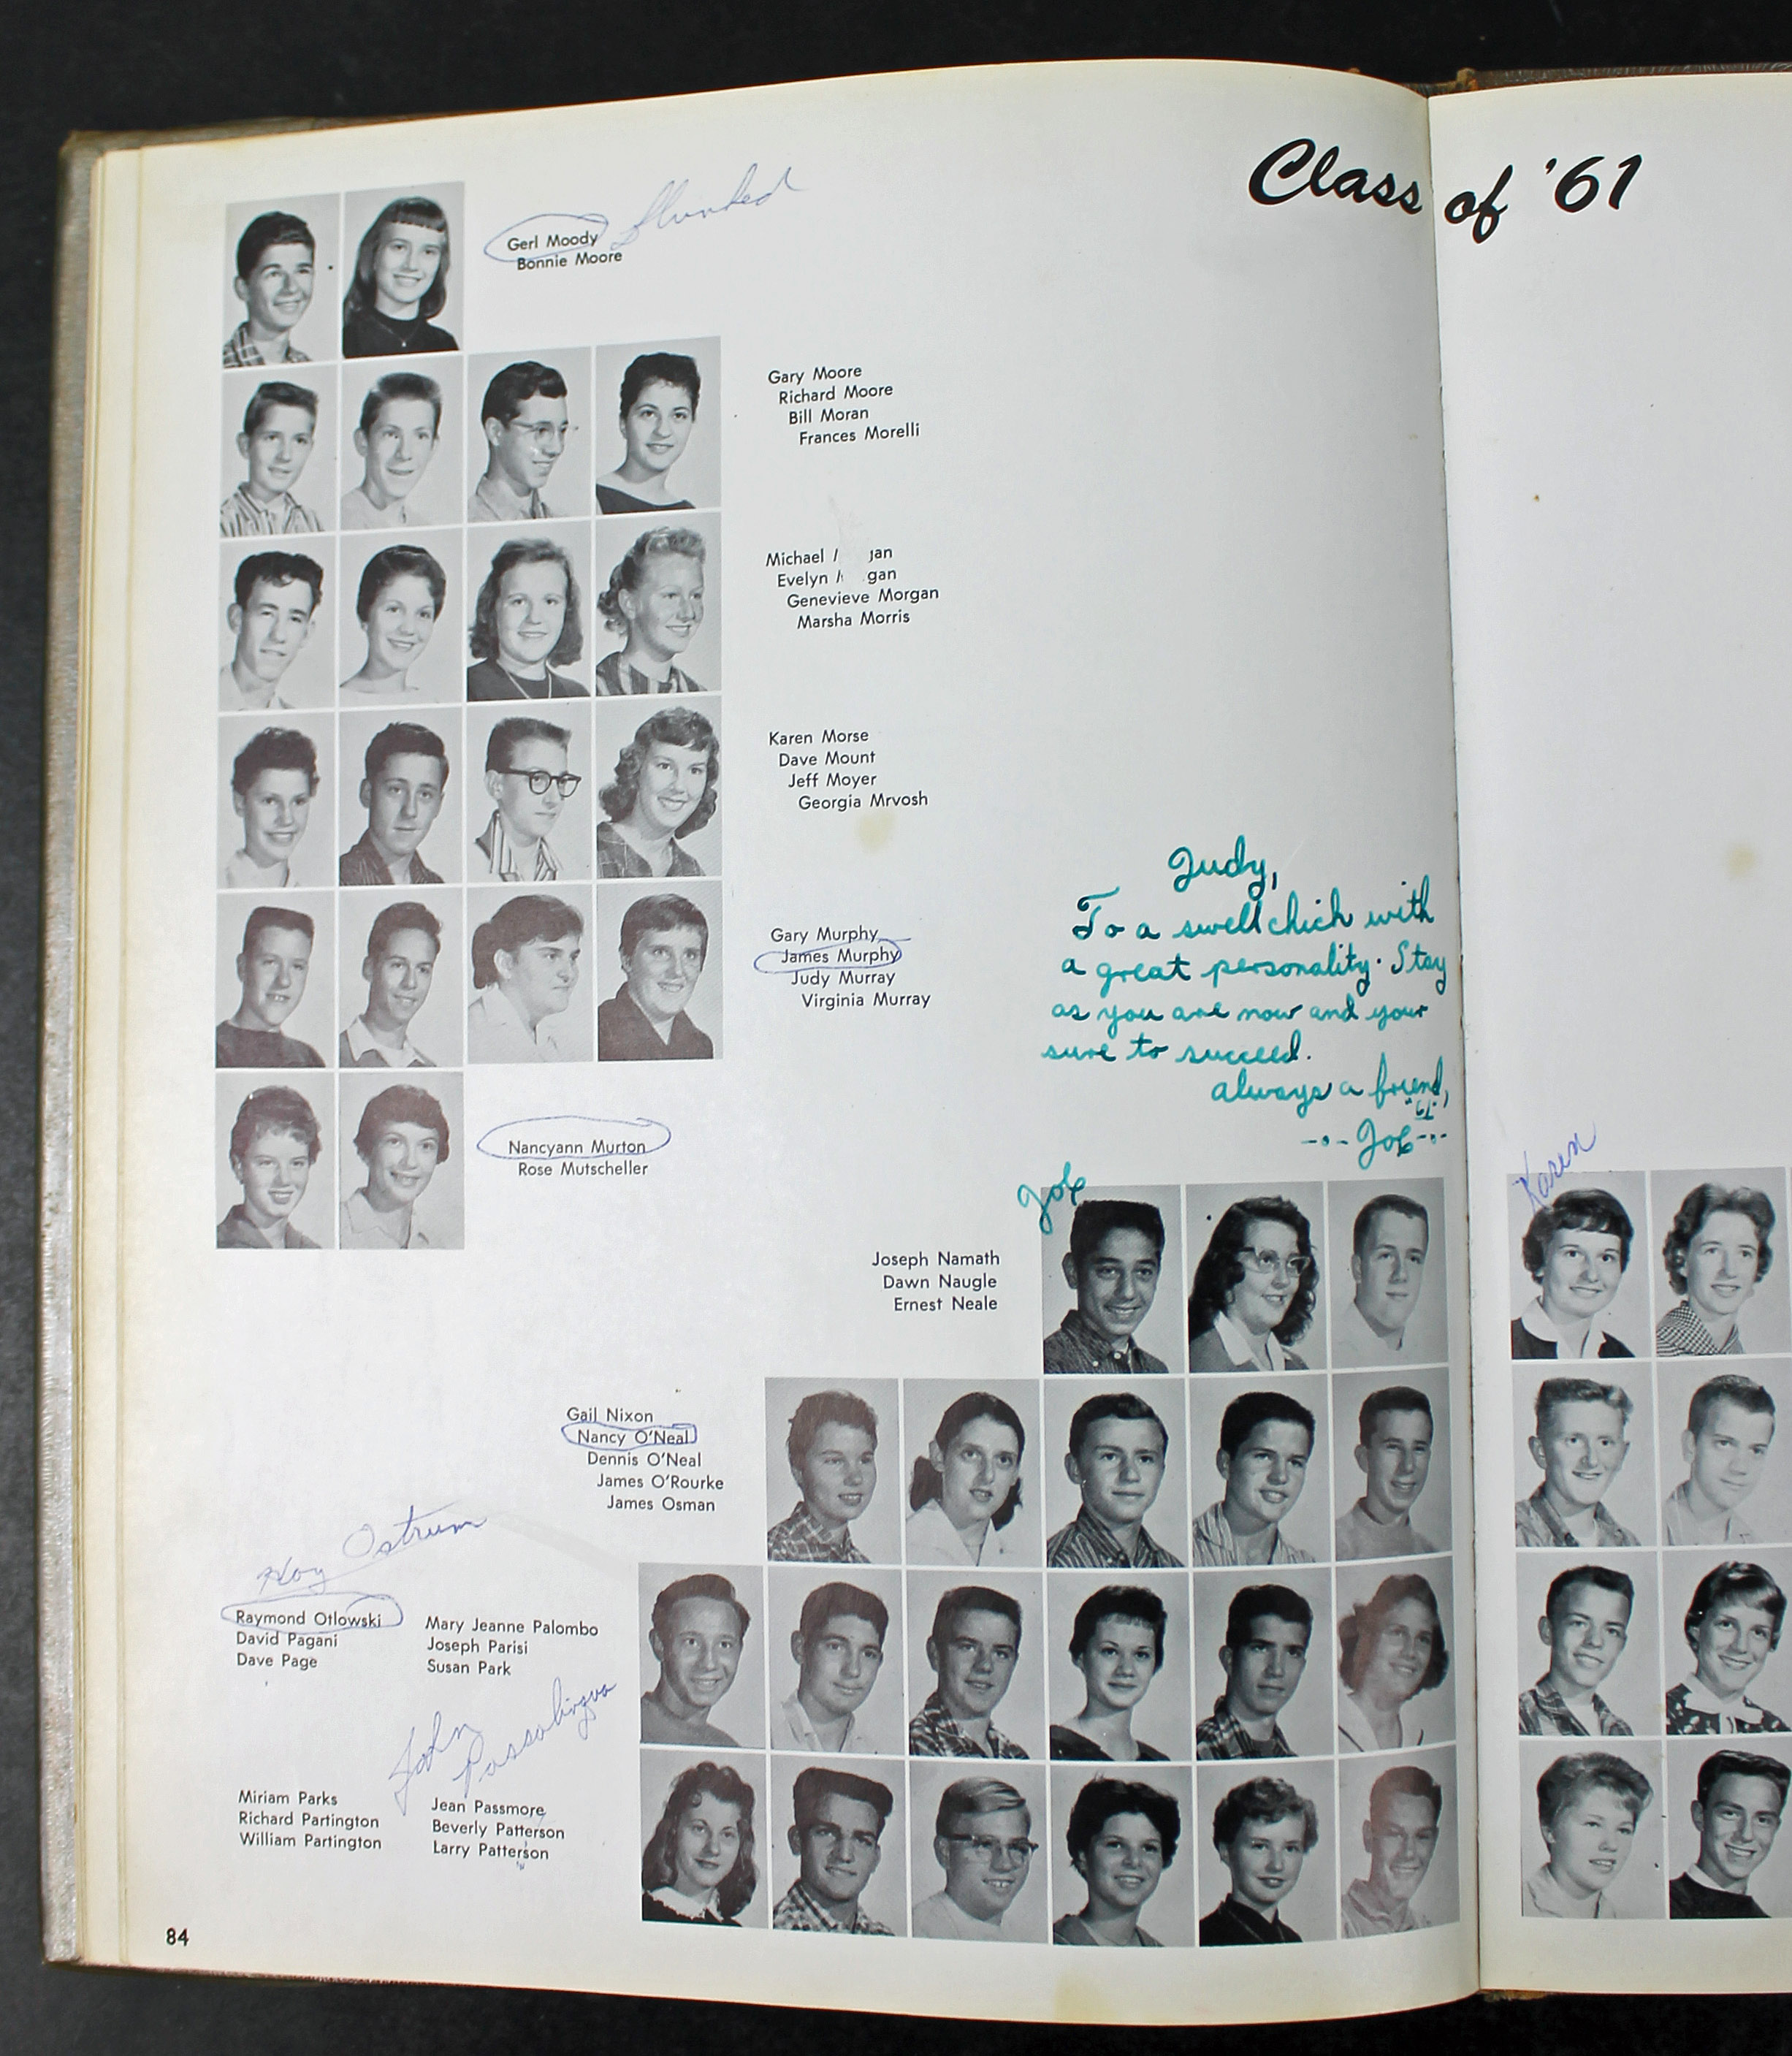 Class of '61
Gerl Moody
Bonnie Moore
Flunked
Gary Moore
Richard Moore
Bill Moran
Frances Morelli
Michael
Evelyn
Genevieve Morgan
Marsha Morris
Karen Morse
Dave Mount
Jeff Moyer
Georgia Mrvosh
Gary Murphy
James Murphy
Judy Murray
Virginia Murray
Nancyann Murton
Rose Mutscheller
Judy,
To a swell chick with
a great personality. Stay
as you are now and your
sure to succeed.
Always a friend,
"61"
Joe
Joe
Joseph Namath
Dawn Naugle
Ernest Neale
Gail Nixon
Nancy O'Neal
Dennis O'Neal
James O'Rourke
James Osman
Ostrum
Raymond Otlowski
David Pagani
Dave Page
Mary Jeanne Palombo
Joseph Parisi
Susan Park
John
Miriam Parks
Richard Partington
William Partington
Jean Passmore
Beverly Patterson
Larry Patterson
84
Karen